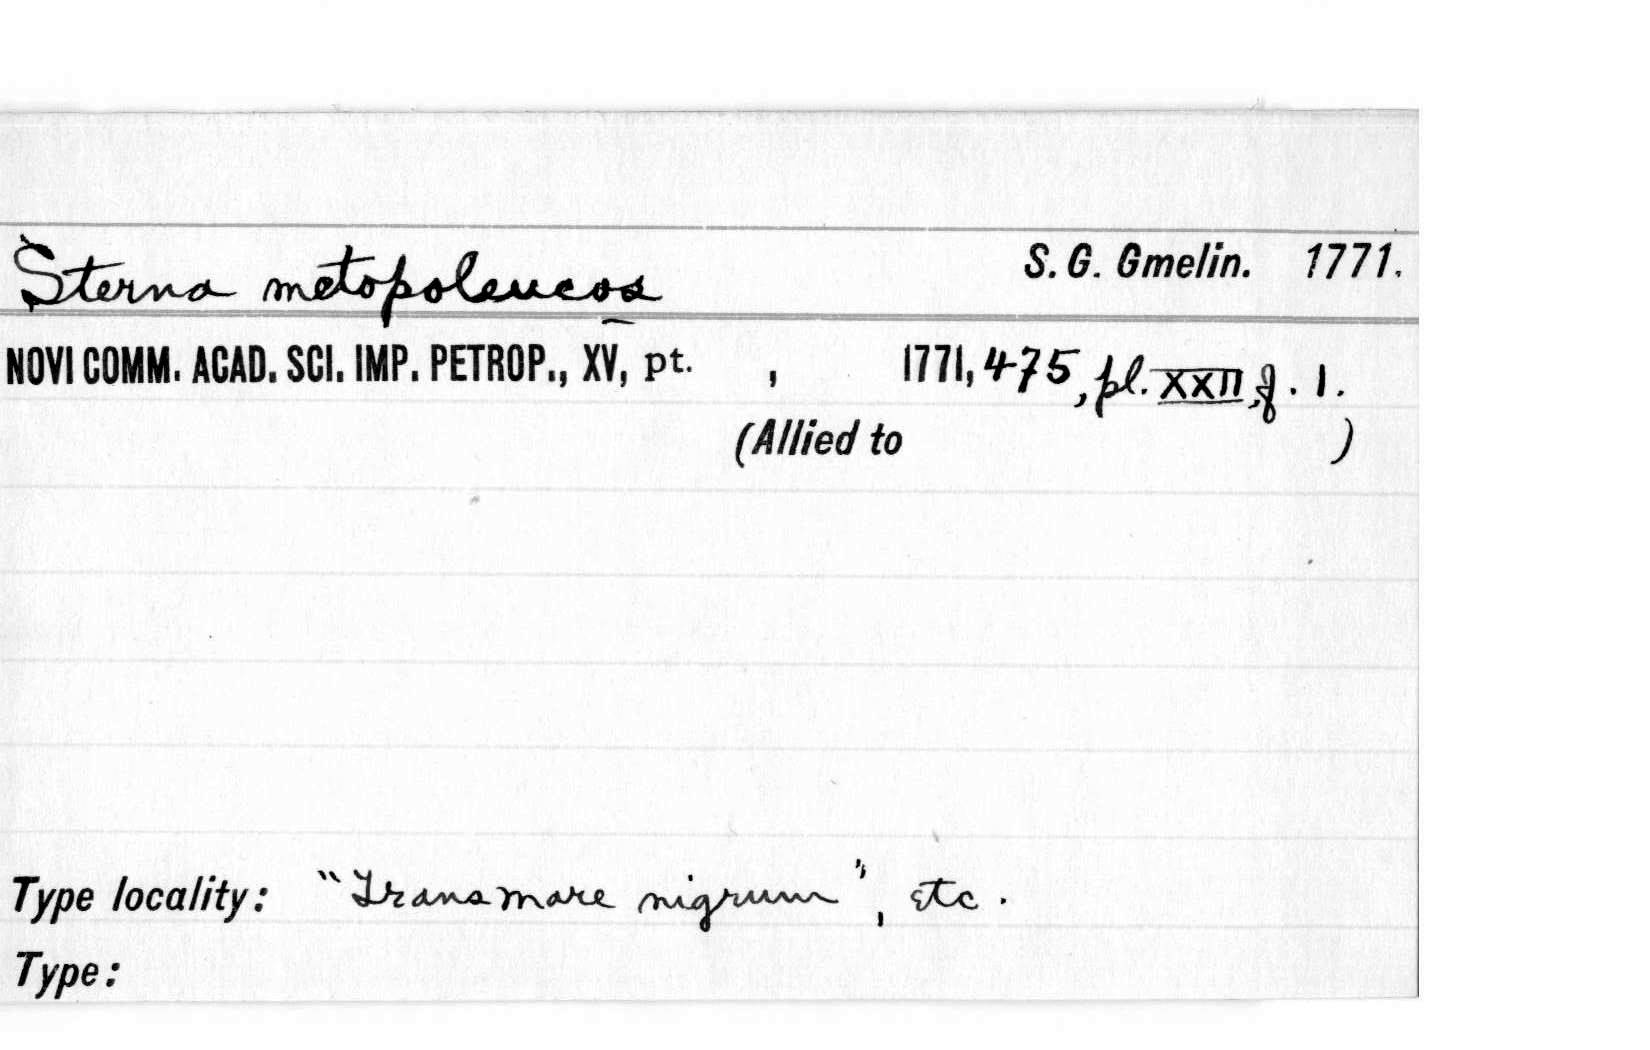 Sterna metopoleucos S. G. Gmelin. 1771.
NOVI COMM. ACAD. SCI. IMP. PETROP., XV, pt. , 1771, 475, pl. XXII, f. 1.
(Allied to )
Type locality: "Trans mare nigrum", etc.
Type: